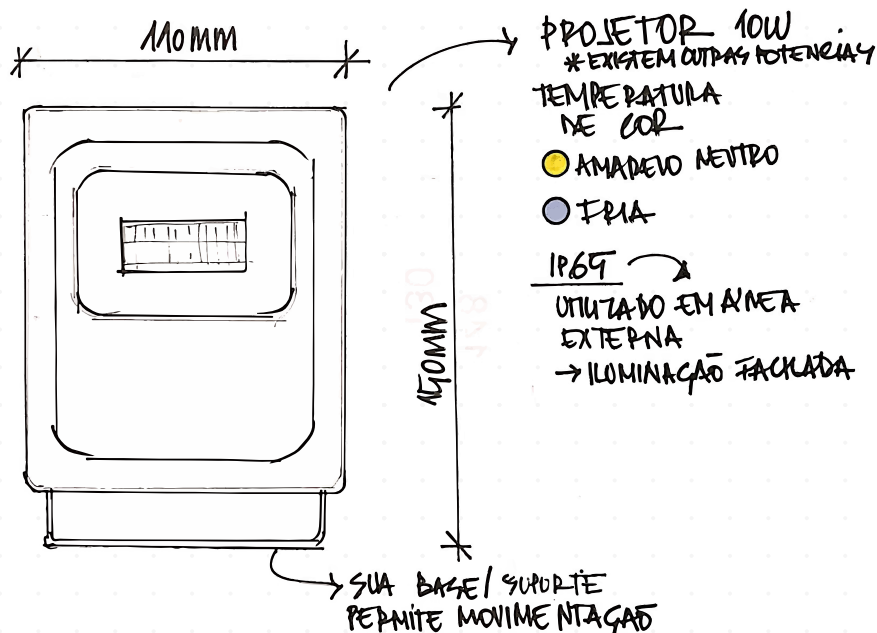 110mm
PROJETOR 10W
* EXISTEM OUTRAS POTENCIAS
TEMPERATURA
DE COR
AMARELO NEUTRO
FRIA
IP65
UTILIZADO EM ÁREA
EXTERNA
→ ILUMINAÇÃO FACHADA
150mm
SUA BASE/ SUPORTE
PERMITE MOVIMENTAÇÃO